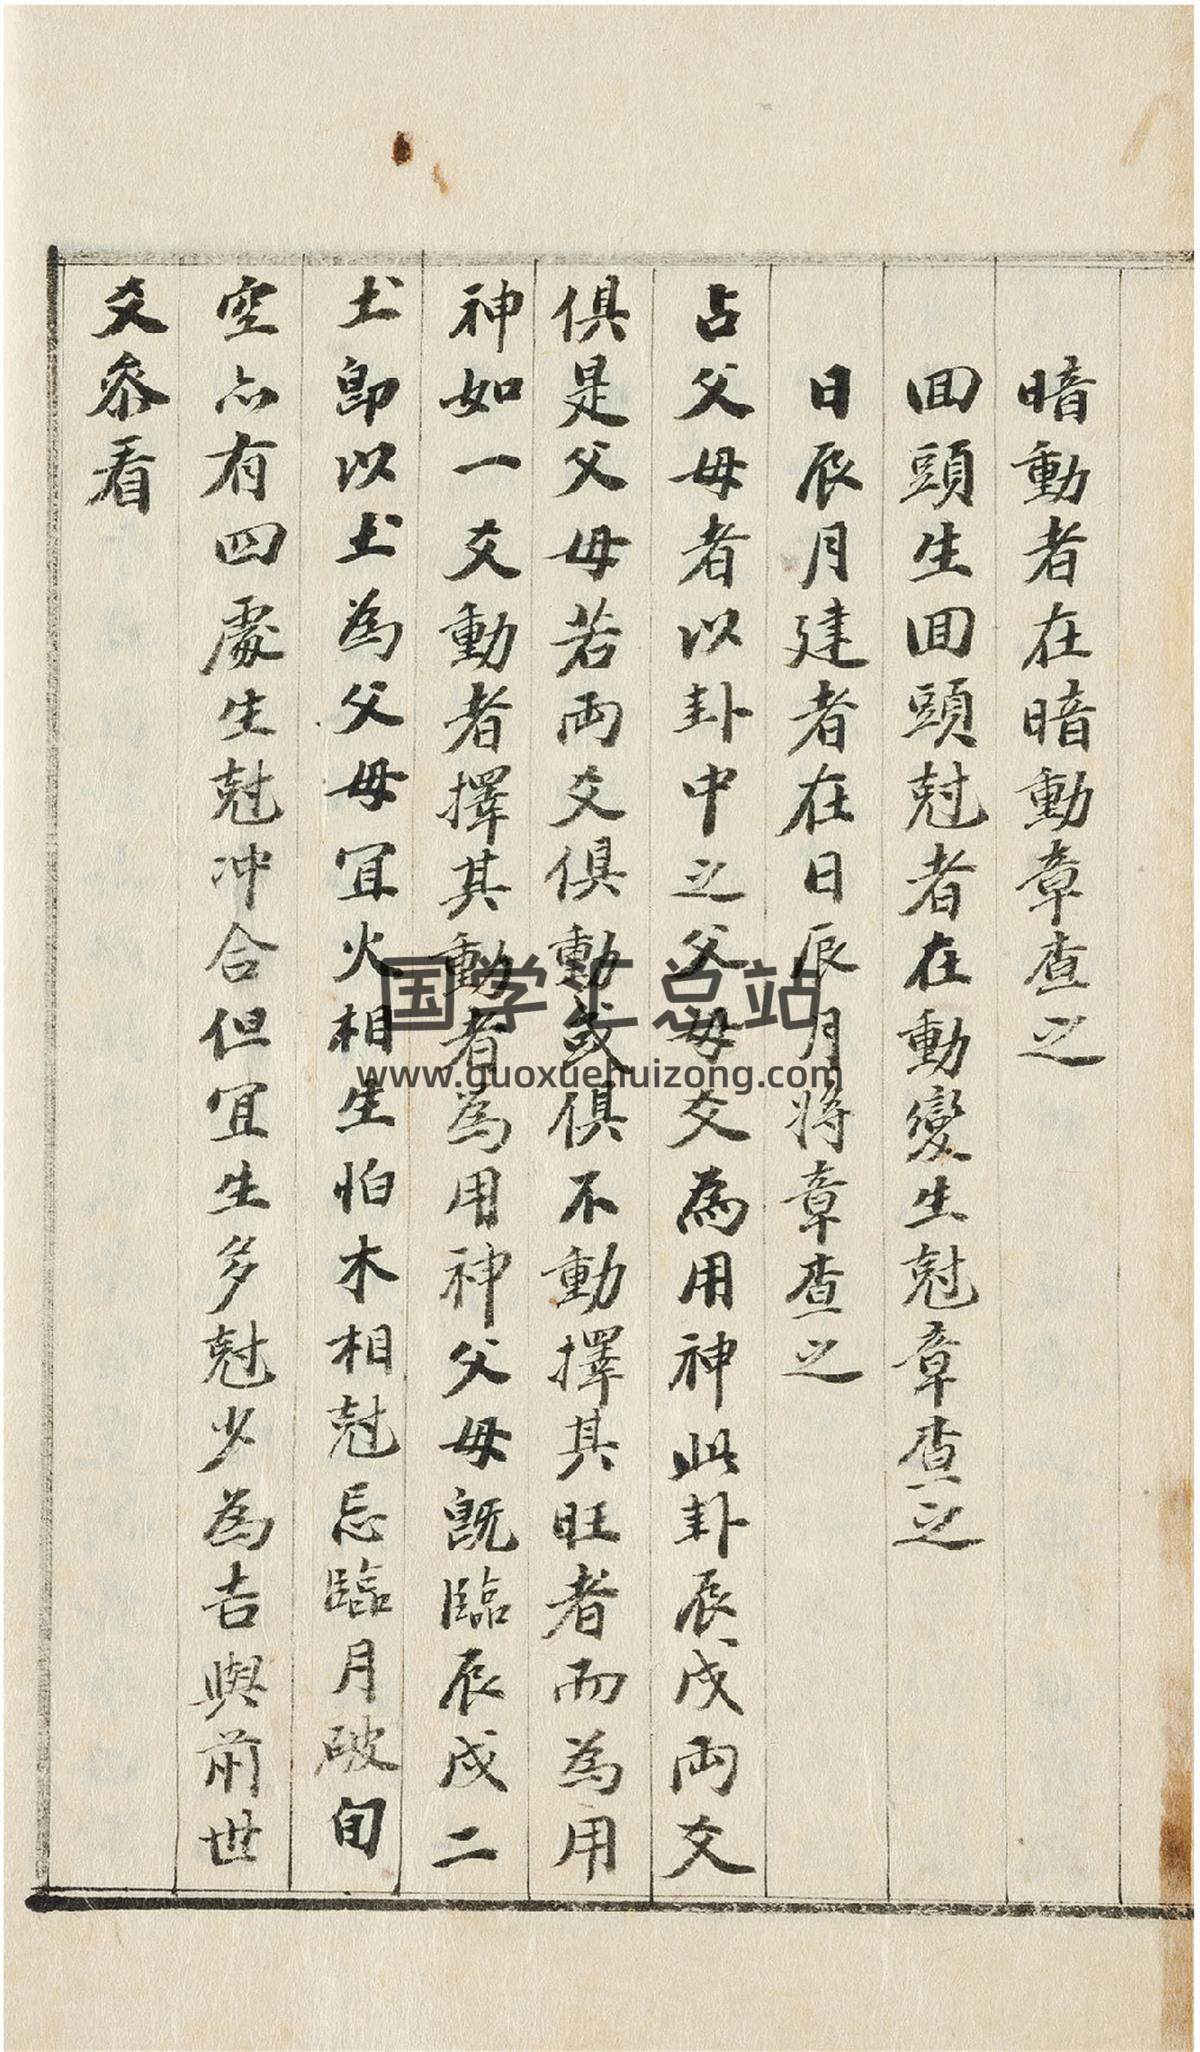 暗動者在暗動章查之
回頭生回頭尅者在動變生尅章查之
日辰月建者在日辰月將章查之
占父母者以卦中之父母爻為用神此卦辰戌兩爻
俱是父母若両爻俱動或俱不動擇其旺者而為用
神如一爻動者擇其動者為用神父母既臨辰戌二
土即以土為父母宜火相生怕木相尅忌臨月破旬
空亦有四處生尅冲合但宜生多尅少為吉與前世
爻叅看
国学汇总站
www.guoxuehuizong.com